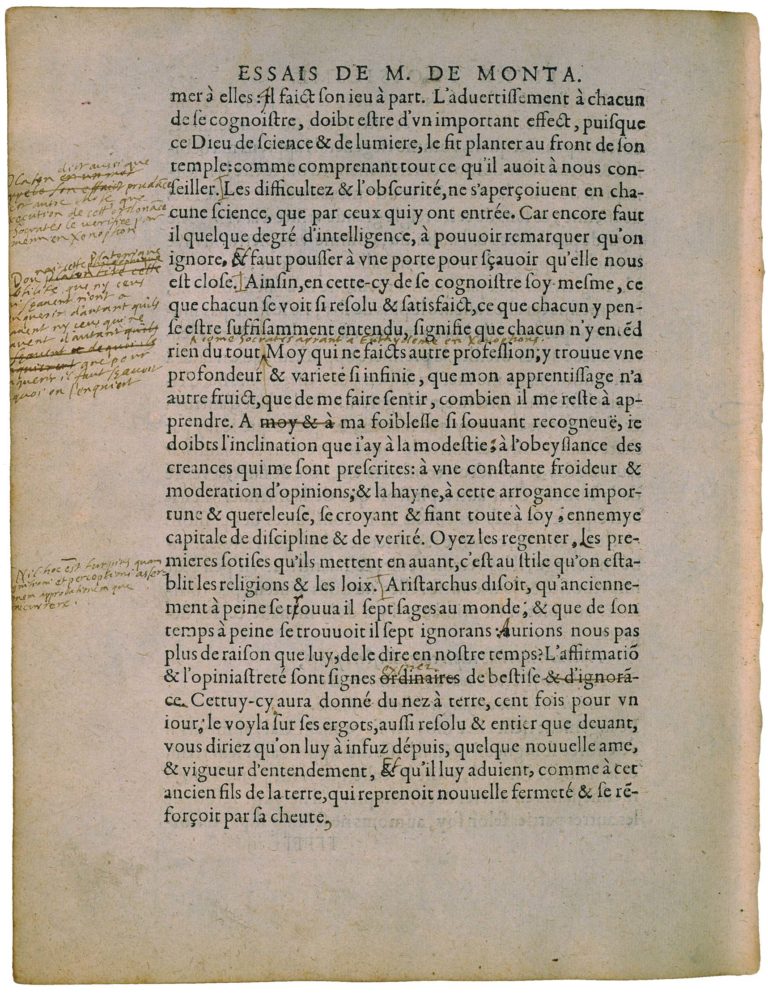 ESSAIS DE M. DE MONTA.
mer à elles: Il faict son ieu à part. L'aduertissement à chacun
de se cognoistre, doibt estre d'vn important effect, puisque
ce Dieu de science & de lumiere, le fit planter au front de son
temple: comme comprenant tout ce qu'il auoit à nous con-
seiller. Les difficultez & l'obscurité, ne s'aperçoiuent en cha-
cune science, que par ceux qui y ont entrée. Car encore faut
il quelque degré d'intelligence, à pouuoir remarquer qu'on
ignore, & faut pousser à vne porte pour sçauoir qu'elle nous
est close. Ainsin, en cette-cy de se cognoistre soy mesme, ce
que chacun se voit si resolu & satisfaict, ce que chacun y pen-
se estre suffisamment entendu, signifie que chacun n'y entēd
rien du tout. Moy qui ne faicts autre profession, y trouue vne
profondeur & varieté si infinie, que mon apprentissage n'a
autre fruict, que de me faire sentir, combien il me reste à ap-
prendre. A moy & à ma foiblesse si souuant recogneuë, ie
doibts l'inclination que i'ay à la modestie: à l'obeyssance des
creances qui me sont prescrites: à vne constante froideur &
moderation d'opinions; & la hayne, à cette arrogance impor-
tune & quereleuse, se croyant & fiant toute à soy, ennemye
capitale de discipline & de verité. Oyez les regenter, Les pre-
mieres sotises qu'ils mettent en auant, c'est au stile qu'on esta-
blit les religions & les loix. Aristarchus disoit, qu'ancienne-
ment à peine se trouua il sept sages au monde; & que de son
temps à peine se trouuoit il sept ignorans: Aurions nous pas
plus de raison que luy, de le dire en nostre temps? L'affirmatiō
& l'opiniastreté sont signes ordinaires de bestise & d'ignorā-
ce. Cettuy-cy aura donné du nez à terre, cent fois pour vn
iour, le voyla sur ses ergots, aussi resolu & entier que deuant,
vous diriez qu'on luy à infuz dépuis, quelque nouuelle ame,
& vigueur d'entendement, & qu'il luy aduient, comme à cet
ancien fils de la terre, qui reprenoit nouuelle fermeté & se rē-
forçoit par sa cheute,
Platon
prudāce
n'autre chose que
execution de cett'ordonāce
Socrates le
en Xenophon
ny ceus
d'autant qu'ils
ny ceus qui ne
d'autant
que pour
il faut sçauoir
de quoi on s'enquiert
Socrates
Euthydeme en Xenophon
expres
Nil hoc est turpius quam
et perceptioni
approbationem que